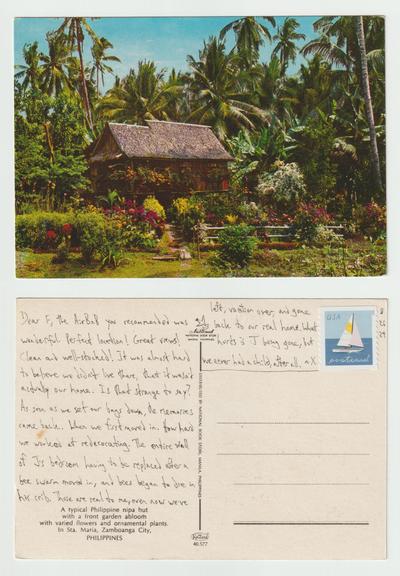 Dear F, the AirBnb you recommended was
wonderful. Perfect location! Great views!
Clean and well-stocked! It was almost hard
to believe we didn't live there, that it wasn't
actually our home. Is that strange to say?
As soon as we set our bags down, the memories
came back. When we first moved in. How hard
we worked at redecorating. The entire wall
of J's bedroom having to be replaced after a
bee swarm moved in, and bees began to die in
his crib. These are real to me, even now we've
left, vacation over, and gone
back to our real home. What
hurts is J being gone, but
we never had a child, after all. x
A typical Philippine nipa hut
with a front garden abloom
with varied flowers and ornamental plants.
In Sta. Maria, Zamboanga City,
PHILIPPINES
DISTRIBUTED BY NATIONAL BOOK STORE, MANILA, PHILIPPINES
40.577
USA
postcard